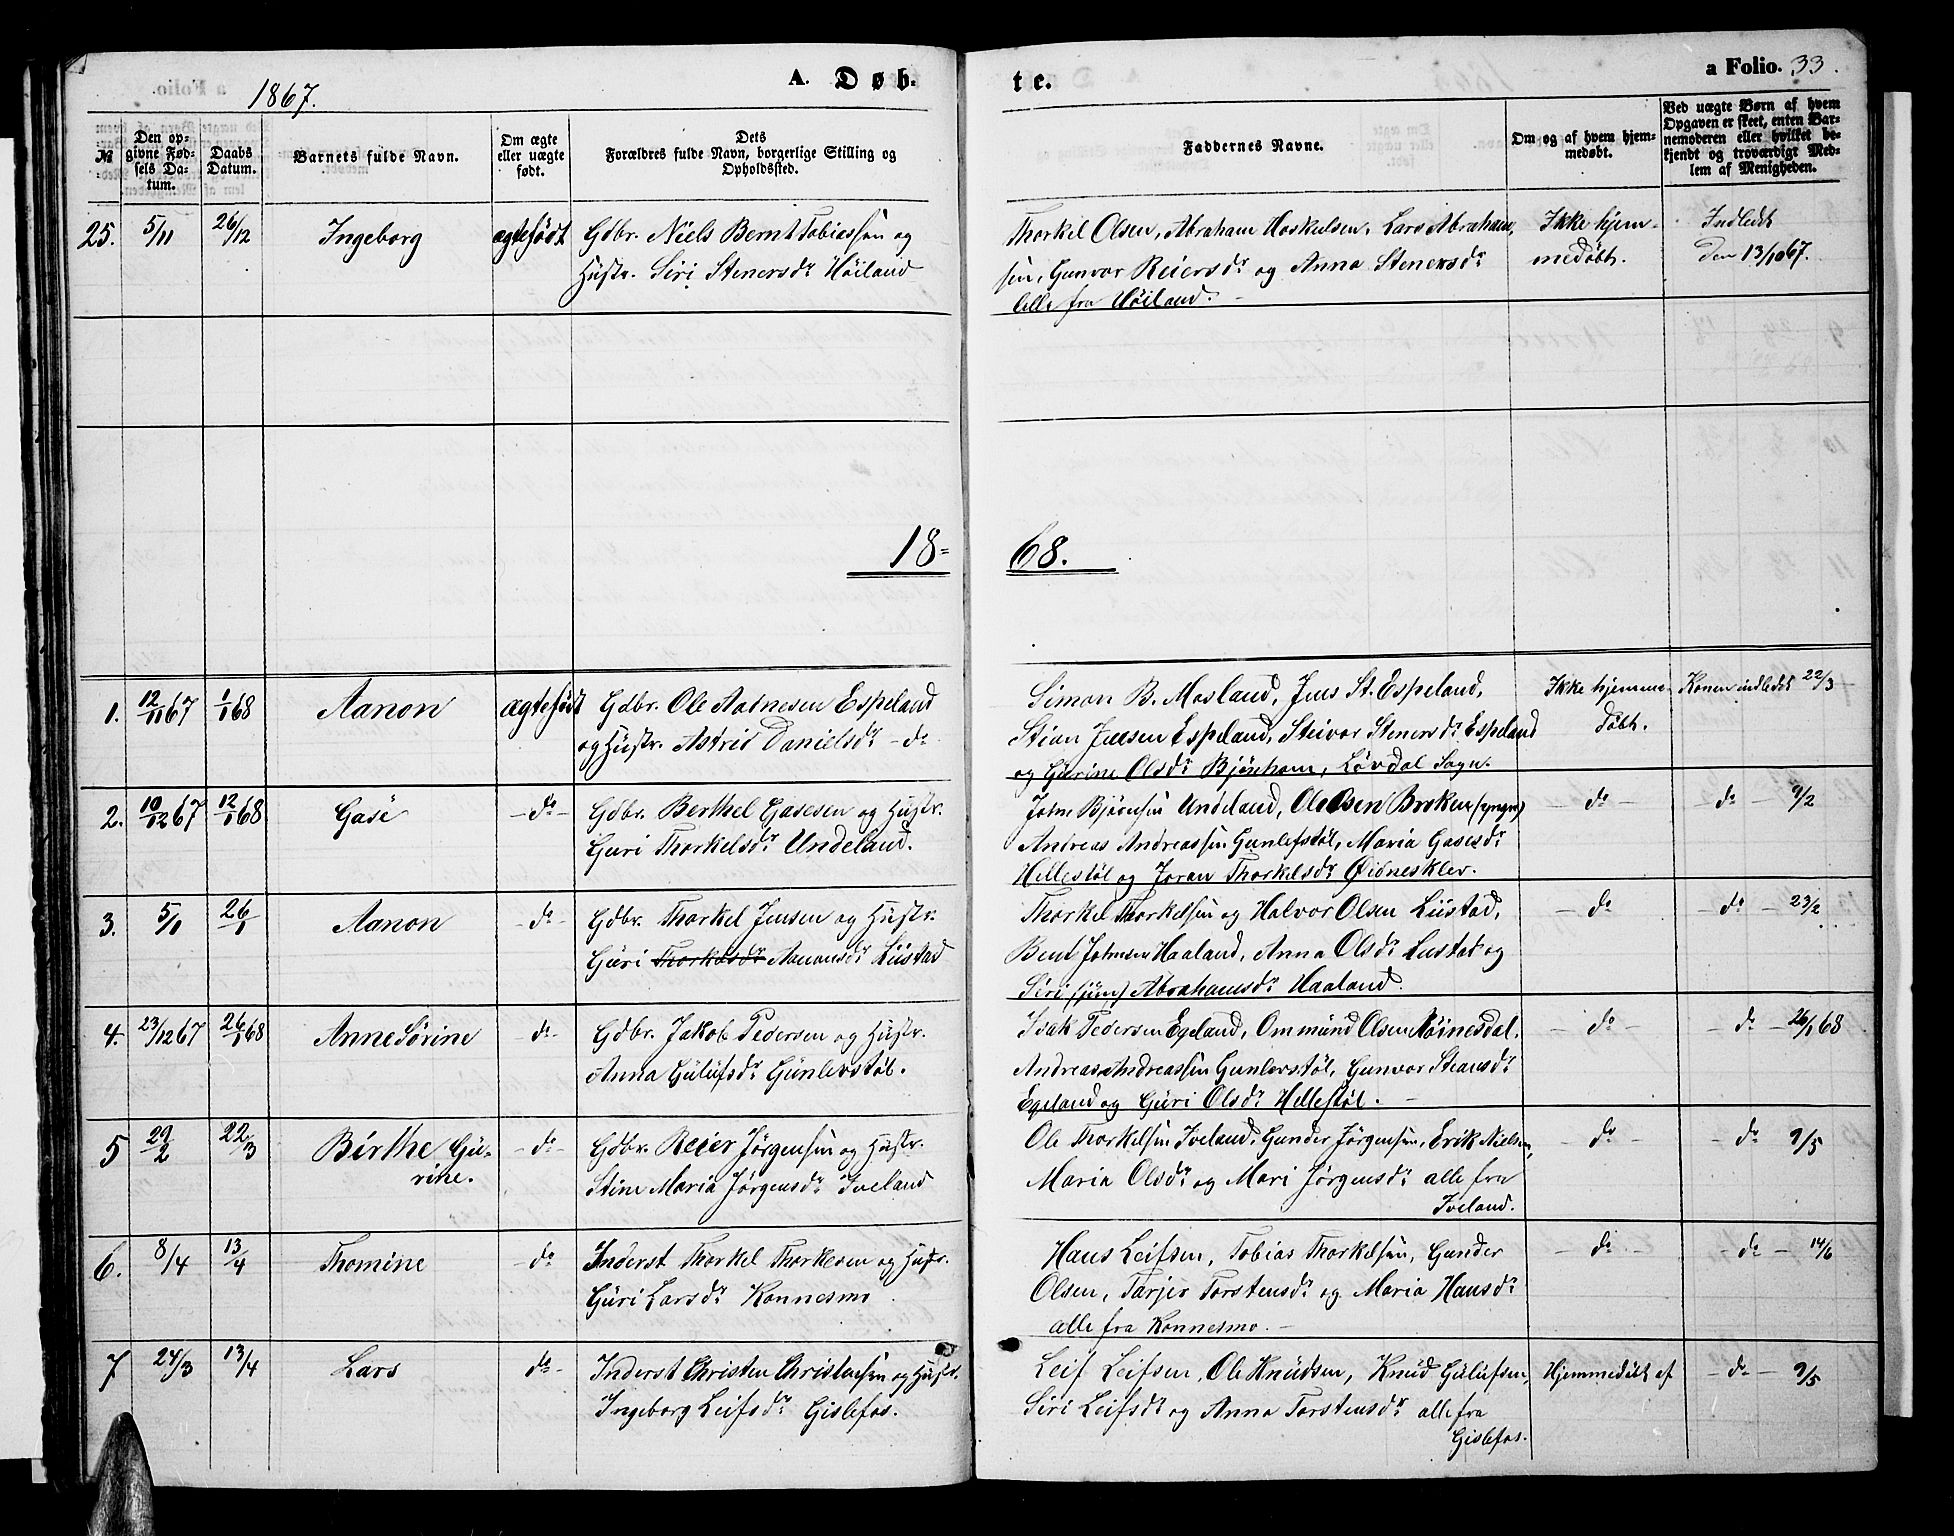 1867.
A. Døb-
te.
a Folio. 33.
№
Den op-
givne Fød-
sels Da-
tum.
Daabs
Datum.
Barnets fulde Navn.
Om ægte
eller uægte
født.
Dets
Forældres fulde Navn, borgerlige Stilling og
Opholdssted.
Faddernes Navne.
Om og af hvem hjem-
medøbt.
Ved uægte Børn af hvem
Opgaven er skeet, enten Bar-
nemoderen eller hvilket be-
kjendt og troværdigt Med-
lem af Menigheden.
25. 5/11 26/12 Ingeborg ægtefødt Gdbr. Niels Bernt Tobiassen og
Hustr. Siri Stenersdr Höiland
Thorkel Olsen, Abraham Hoskulsen, Lars Abraham-
sen, Gunvor Reiersdr og Anna Stenersdr
alle fra Höiland. -
Ikke hjem-
medøbt.
Indledt
den 13/10 67.
18=
68.
1. 12/11 67 1/1 68 Aanon ægtefødt Gdbr. Ole Aatnesen Espeland
og Hustr. Astrid Danielsdr - do
Simon B. Mosland, Jens St. Espeland,
Stian Jensen Espeland, Steivor Stenersdr Espeland
og Gurine Olsdr Bjönham, Lövdal Sogn.
Ikke hjemme-
døbt.
Konen indledet 22/3
2. 10/12 67 12/1 68 Gase - do - Gdbr. Berthel Gasesen og Hustr.
Guri Thorkelsdr Undeland.
John Bjørnsen Undeland, Ole Olsen Broken (yngre)
Andreas Andreassen Gunlefstøl, Maria Gasesdr
Hellestøl og Joran Thorkelsdr Øidnesklev.
- do -
- do - 9/2
3. 5/1 26/1 Aanon - do - Gdbr. Thorkel Jensen og Hustr.
Guri Thorkelsdr Aanonsdr Liistad
Thorkel Thorkelsen og Halvor Olsen Liistad,
Bent Johnsen Haaland, Anna Olsdr Liistad og
Siri (jün) Abrahamsdr Haaland.
- do
- do - 23/2
4. 23/12 67 26/1 68 Anne Sørine - do - Gdbr. Jakob Pedersen og Hustr.
Anna Gulufsdr Gunlevstøl.
Isak Pedersen Egeland, Ommund Olsen Röinesdal,
Andreas Andreassen Gunlevstøl, Gunvor Steansdr
Egeland og Guri Olsdr Hellestøl. -
- do
- do - 26/1 68
5 29/2 22/3 Birthe Gu-
rine.
- do - Gdbr. Reier Jørgensen og Hustr.
Stine Maria Jørgensdr Iveland
Ole Thorkelsen Iveland, Gunder Jørgensen, Erik Nielsen,
Maria Olsdr og Mari Jørgensdr alle fra
Iveland.
- do -
- do 9/5
6. 8/4 13/4 Thomine - do - Inderst Thorkel Thorkelsen og Hustr.
Guri Larsdr Konnesmo
Hans Leifsen, Tobias Thorkelsen, Gunder
Olsen, Tarjer Torstensdr og Maria Hansdr
alle fra Konnesmo. -
- do -
- do - 14/6
7 24/3 13/4 Lars do - Inderst Christen Christensen og Hustr.
Ingeborg Leifsdr Gislefos.
Leif Leifsen, Ole Knudsen, Knud Gulufsen,
Siri Leifsdr og Anna Torstensdr alle fra
Gislefos.
Hjemmedöbt af
- do - 9/5